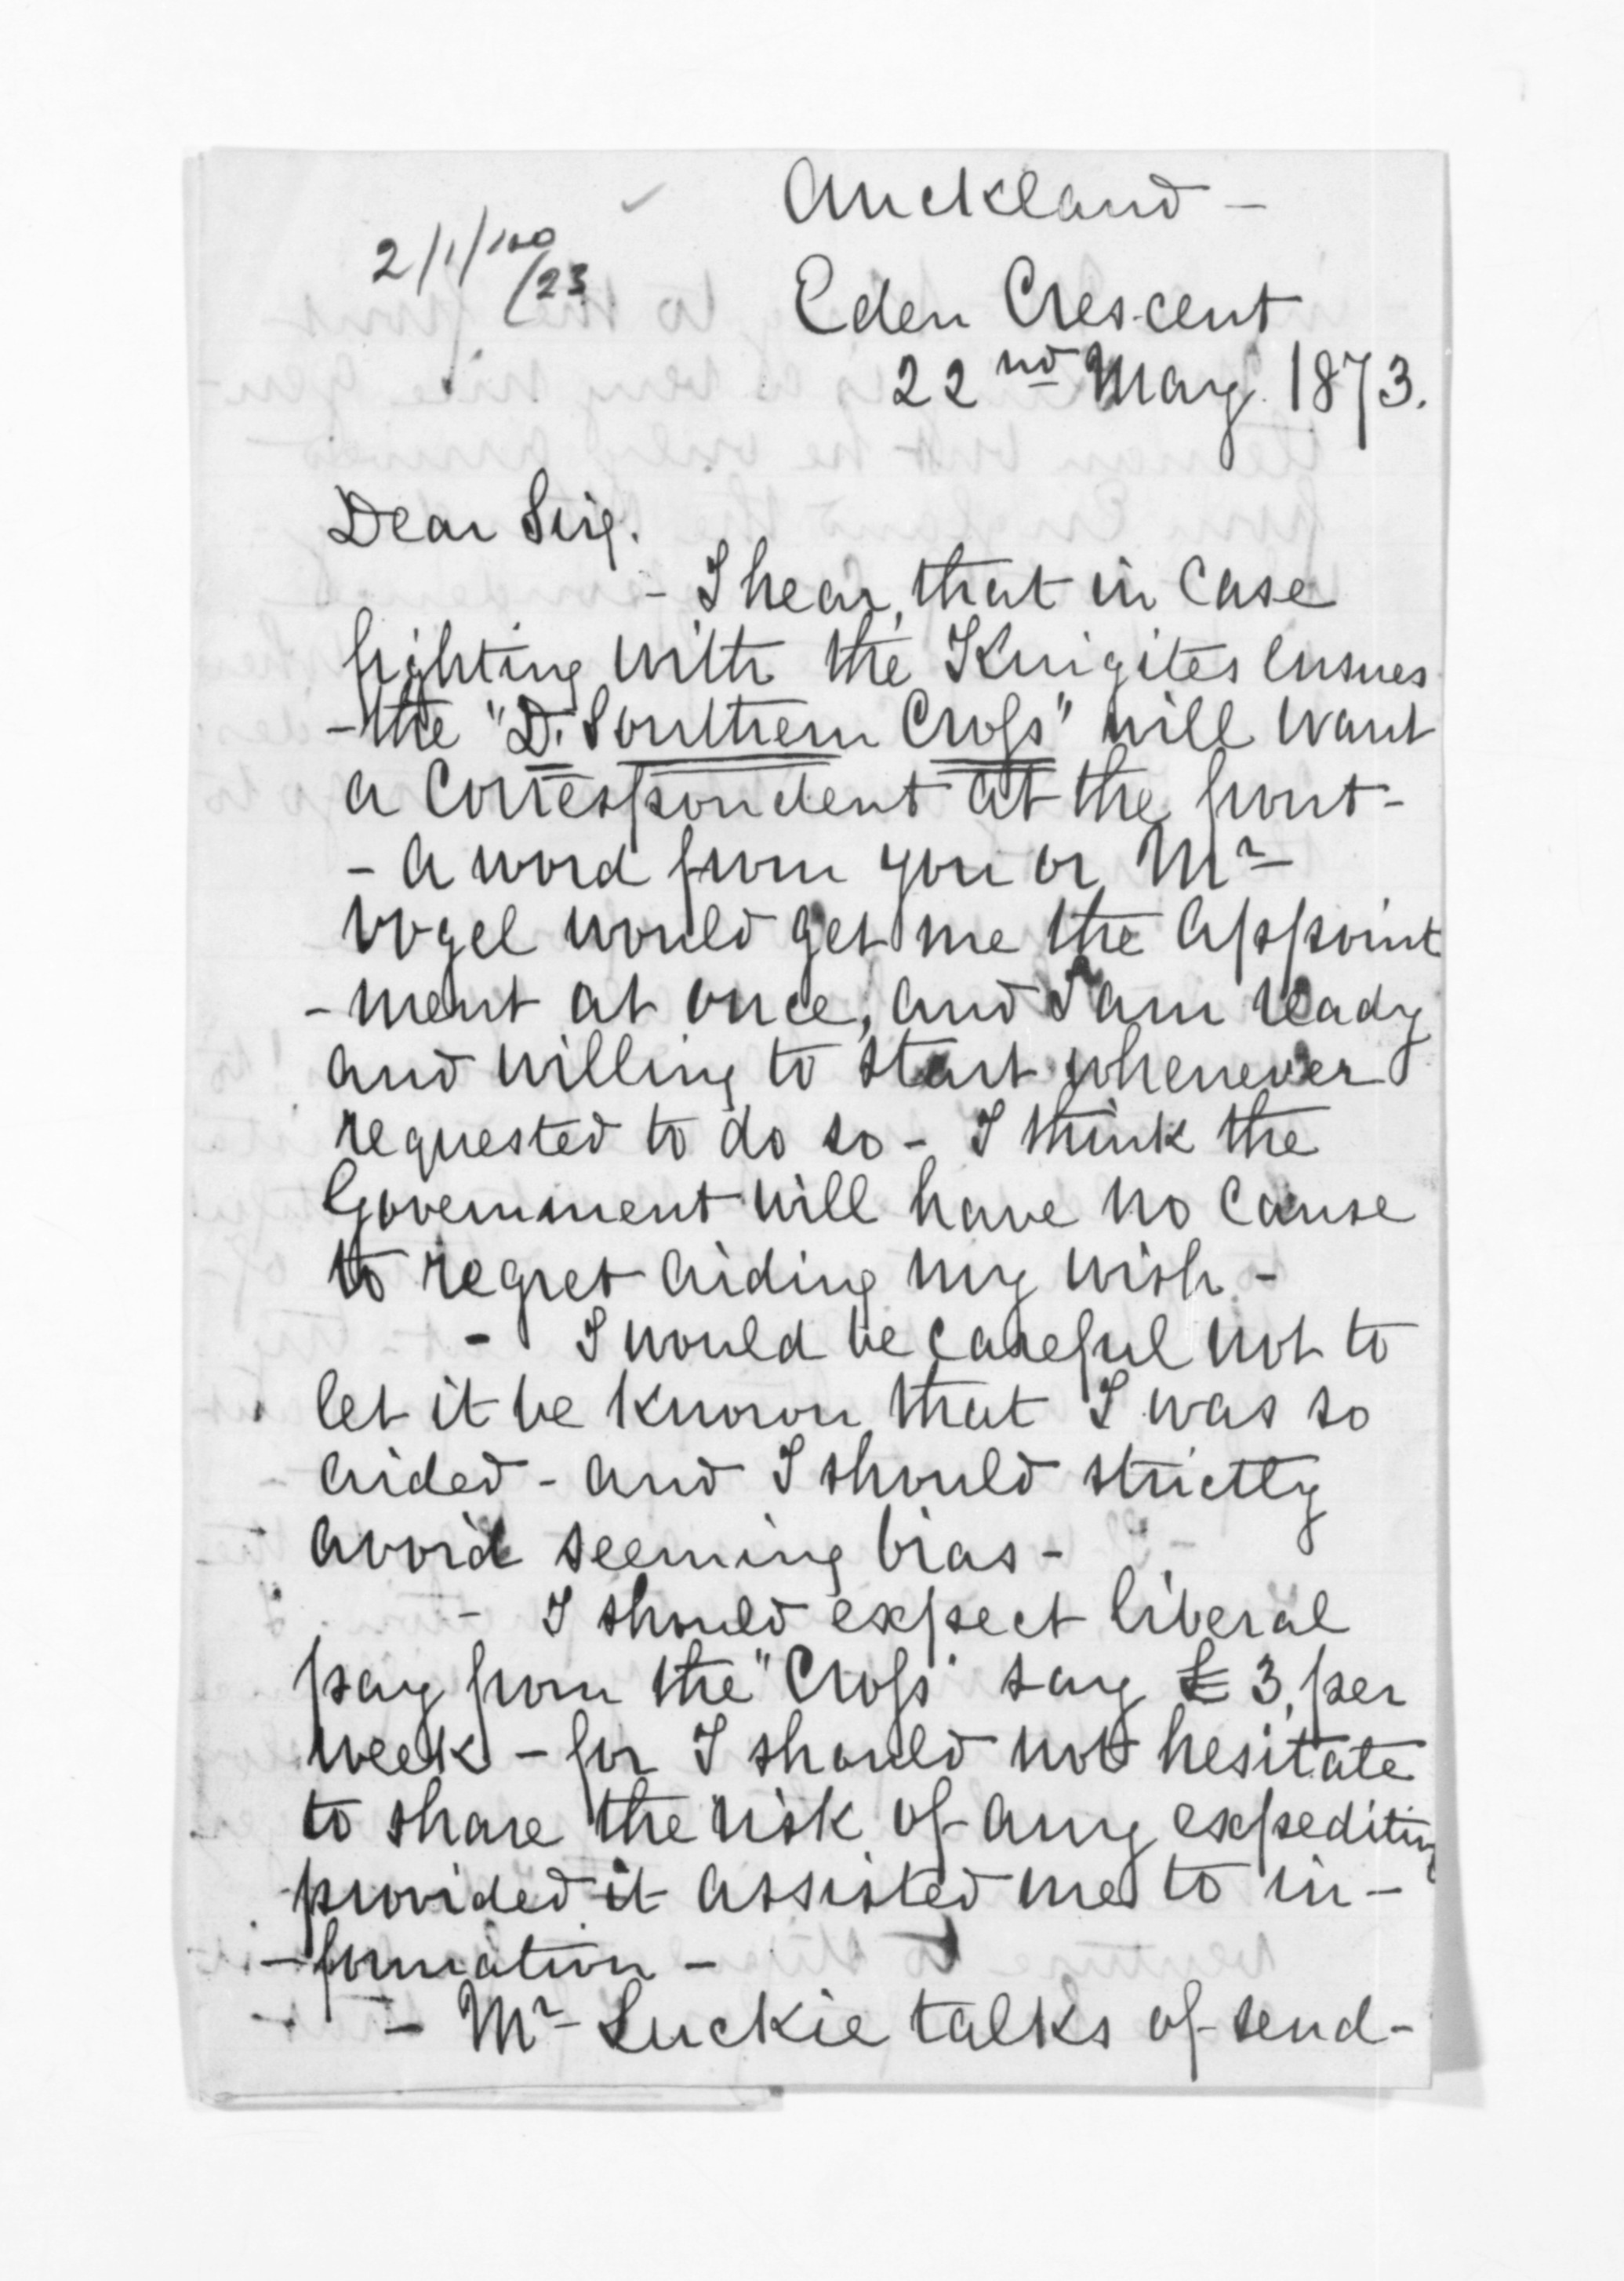 Auckland -
2/1/100
/23
Eden Crescent
22nd May. 1873.
Dear Sir,.
- I hear, that in case
fighting with the Kingites ensues
- the "D. Southern Cross" will want
a Correspondent at the front -
- A word from you or Mr
Vogel would get me the appoint
- ment at once, and I am ready
and willing to start whenever
requested to do so - I think the
Government will have no cause
to regret aiding my wish -
- I would be careful not to
let it be known that I was so
aided - and I should strictly
avoid seeming bias -
- I should expect liberal
pay from the "Cross" say £3, per
week - for I should not hesitate
to share the risk of any expedition
provided it assisted me to in -
- formation -
- Mr Luckie talks of send -